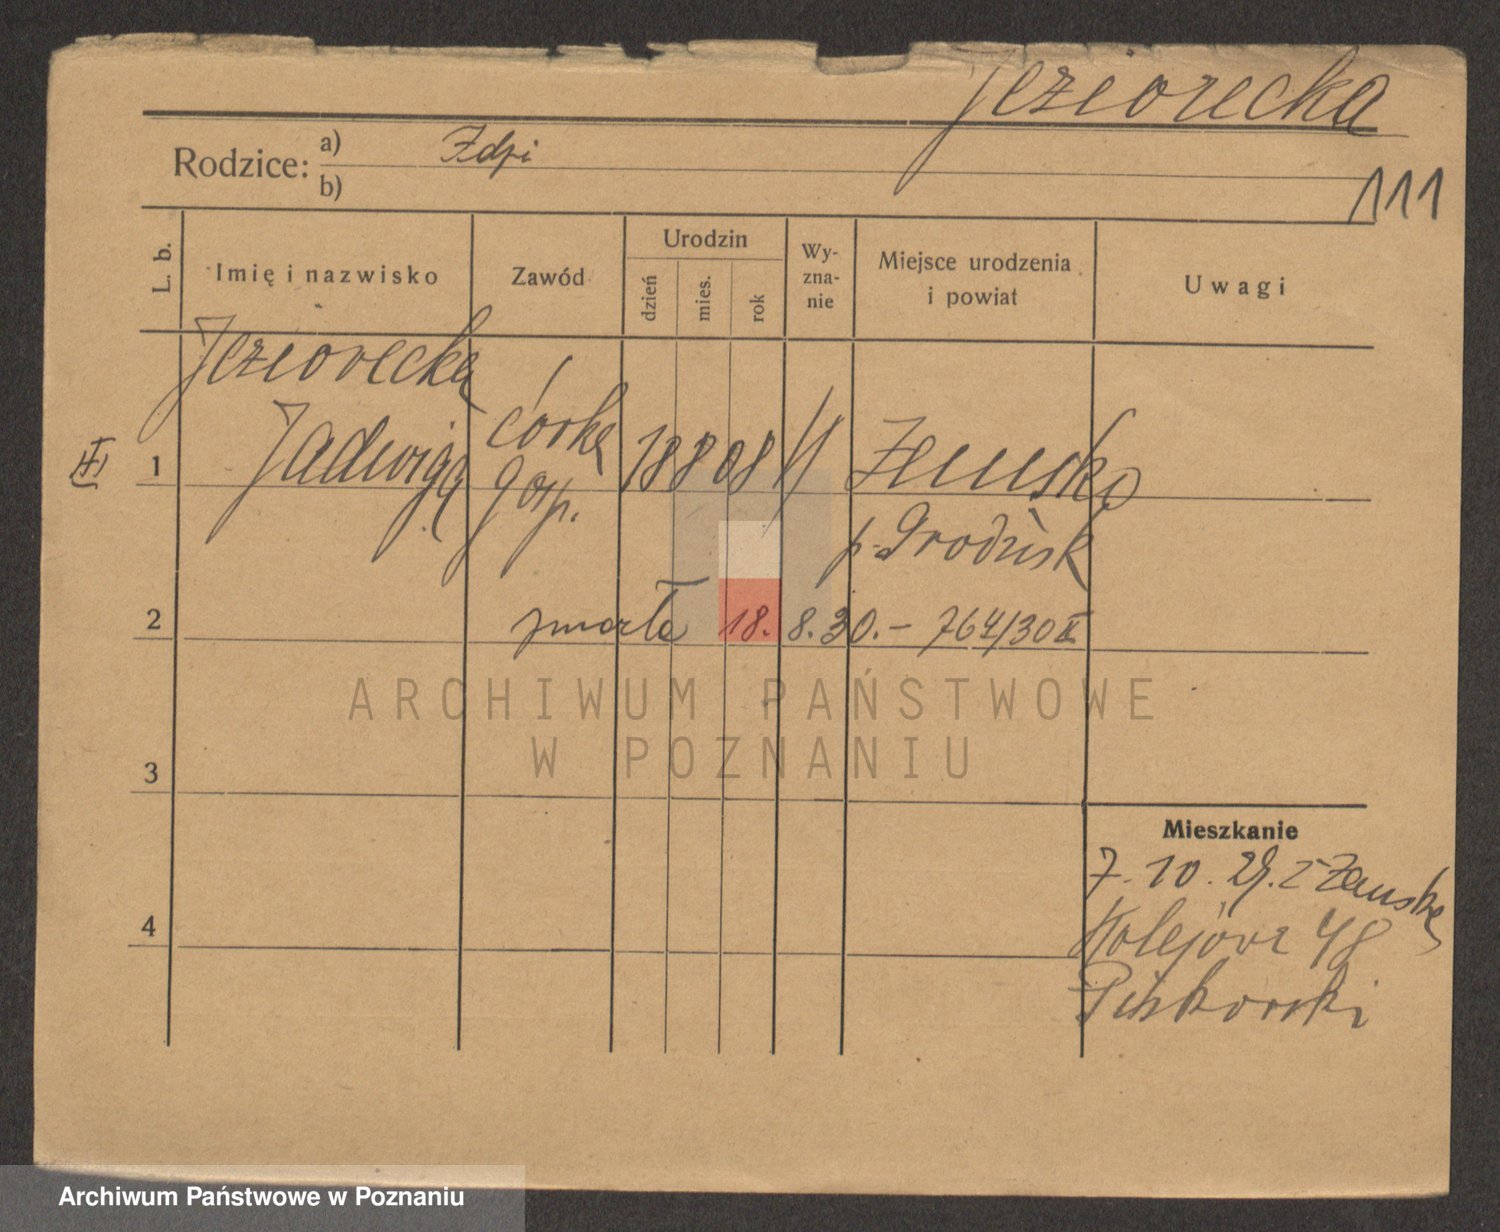 Jeziorecka
Rodzice: a)
b)
111
L. b.
Imię i nazwisko
Zawód
Urodzin
dzień
mies.
rok
Wy-
zna-
nie
Miejsce urodzenia
i powiat
Uwagi
Jeziorecka
1 Jadwiga córka 18 8 08 Zemsko
gosp. p. Grodzisk
2 zmarła 18. 8. 30. – 764/30 II
ARCHIWUM PAŃSTWOWE
W POZNANIU
3
Mieszkanie
7. 10. 29. z Zemska
4
Kolejowa 48
Piskorski
Archiwum Państwowe w Poznaniu